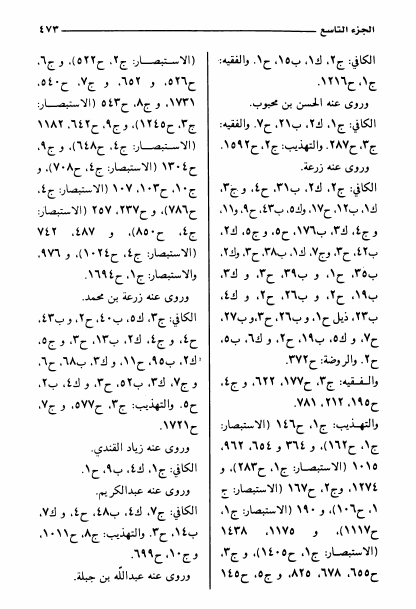 الجزء التاسع
٤٧٣
الكافي: ج٢، ك١، ب١٥، ح١. والفقيه:
ج١، ح١٢١٦.
وروى عنه الحسن بن محبوب.
الكافي: ج١، ك٢، ب٢١، ح٧. والفقيه:
ج٣، ح٢٨٧. والتهذيب: ج٢، ح١٥٩٢.
وروى عنه زرعة.
الكافي: ج٢، ك٢، ب٣١، ح٤، و ج٣،
ك١، ب١٢، ح١٧، وك٥، ب٤٣، ح٩، و١١،
و ج٤، ك٣، ب١٧٦، ح٥، و ج٥، ك٢،
ب٤٢، ح٣، وج٧، ك١، ب٣٨، ح٣، وك٢،
ب٣٥، ح١، و ب٣٩، ح٣، و ك٣،
ب١٩، ح٢، و ب٢٦، ح٢، و ك٤،
ب٢٣، ذيل ح١، و ب٢٦، ح٣، وب٢٧،
ح٧، و ك٥، ب١٩، ح٢، و ك٦، ب٥،
ح٢. والروضة: ح٣٧٢.
والـفـقيه: ج٣، ح١٧٧، ٦٢٢، و ج٤،
ح١٩٥، ٢١٢، ٧٨١.
والتهـذيب: ج١، ح١٤٦ (الاستبصار:
ج١، ح١٦٢)، و ٣٦٤ و ٦٥٤، ٩٦٢،
١٠١٥ (الاستبصار: ج١، ح٢٨٣)، و
١٢٧٤، وج٢، ح١٦٧ (الاستبصار: ج
١، ح١٠٦)، و ١٩٠ (الاستبصار: ج١،
ح١١١٧)، و ١١٧٥، ١٤٣٨
(الاستبصار: ج١، ح١٤٠٥)، و ج٣،
ح٦٥٥، ٦٧٨، ٨٢٥، و ج٥، ح١٤٥
(الاستبصار: ج٢، ح٥٢٢)، و ج٦،
ح٥٢٦، و ٦٥٢، و ج٧، ح٥٤٠،
١٧٣١، و ج٨، ح٥٤٣ (الاستبصار:
ج٣، ح١٢٤٥)، و ج٩، ح٦٤٢، ١١٨٢
(الاستبصار: ج٤، ح٦٤٨)، و ج٩،
ح١٣٠٤ (الاستبصار: ج٤، ح٧٠٨)، و
ج١٠، ح١٠٣، ١٠٧ (الاستبصار: ج٤،
ح٧٨٦)، و ح٢٣٧، ٢٥٧ (الاستبصار:
ج٤، ح٨٥٠)، و ٤٨٧، ٧٤٢
(الاستبصار: ج٤، ح١٠٢٤)، و ٩٧٦،
والاستبصار: ج١، ح١٦٩٤.
وروى عنه زرعة بن محمد.
الكافي: ج٣، ك٥، ب٤٠، ح٢، و ب٤٣،
ح٤، و ج٤، ك٢، ب١٣، ح٣، و ج٥،
ك٢، ب٩٥، ح١١، و ك٣، ب٦٨، ح٦،
و ج٧، ك٣، ب٥٢، ح٣، و ك٤، ب٢،
ح٥. والتهذيب: ج٣، ح٥٧٧، و ج٧،
ح١٧٢١.
وروى عنه زياد القندي.
الكافي: ج١، ك٤، ب٩، ح١.
وروى عنه عبدالكريم.
الكافي: ج٧، ك٤، ب٤٨، ح٤، و ك٧،
ب١٤، ح٣. والتهذيب: ج٨، ح١٠١١،
و ج١٠، ح٦٩٩.
وروى عنه عبدالله بن جبلة.